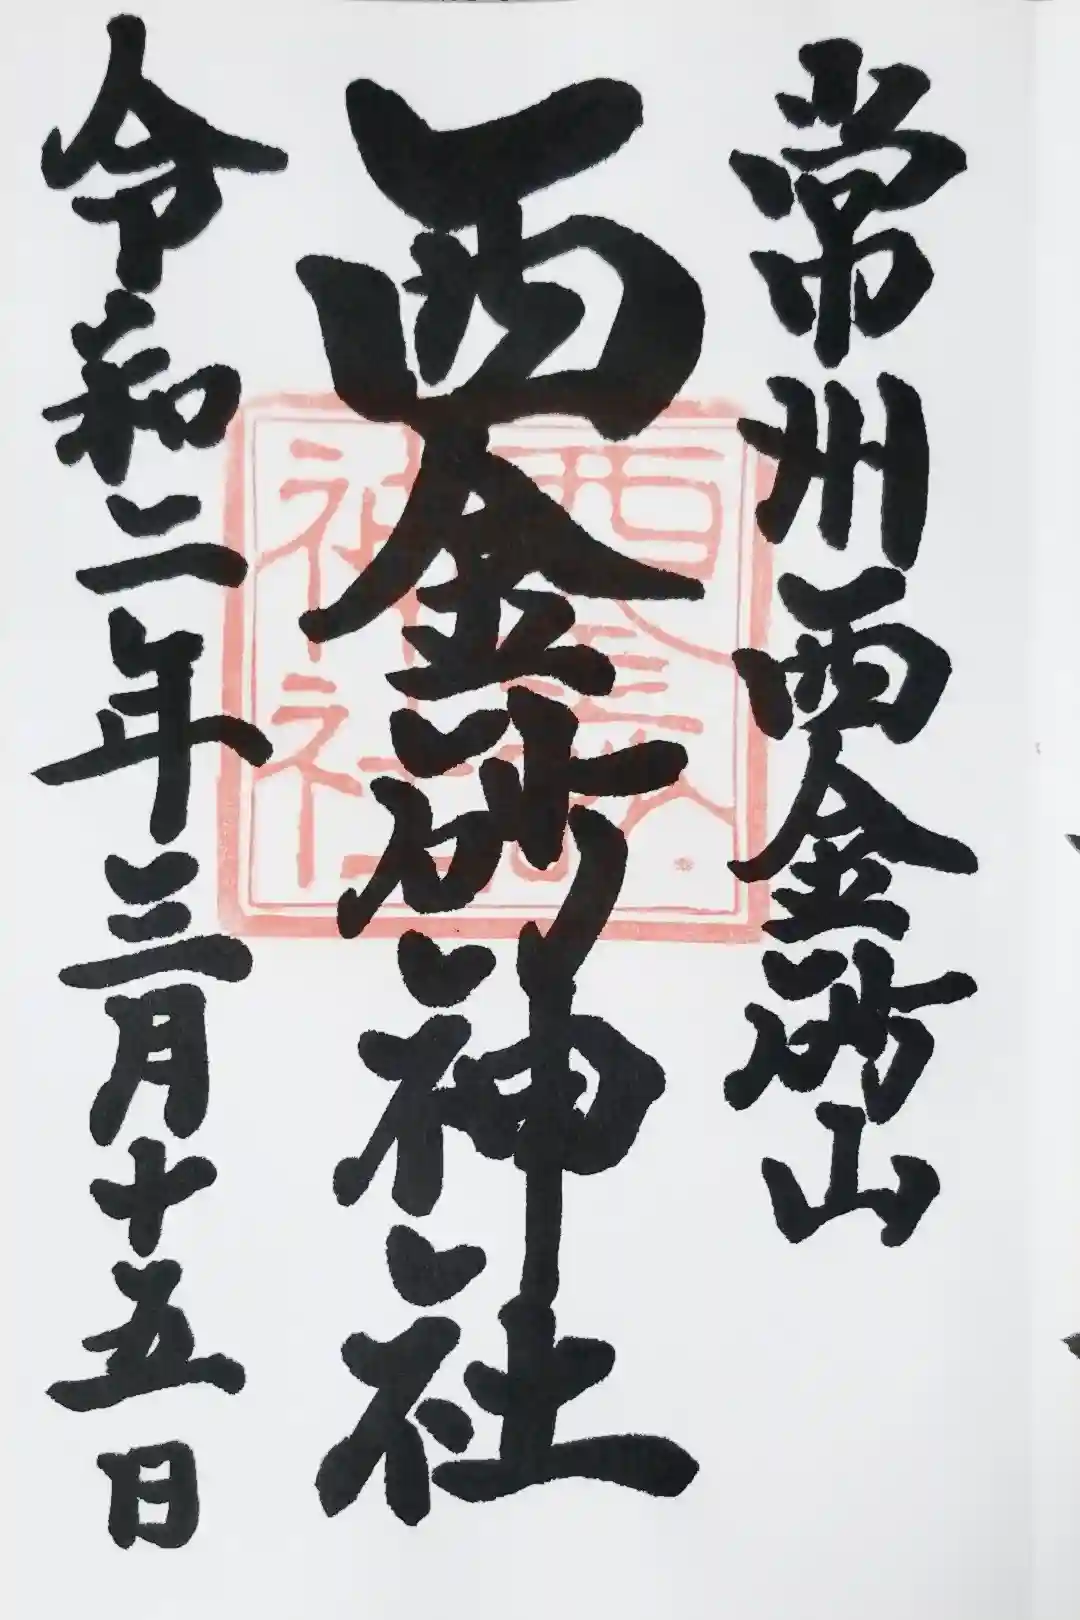 常州西金砂山
西金砂神社
令和二年三月十五日
神社